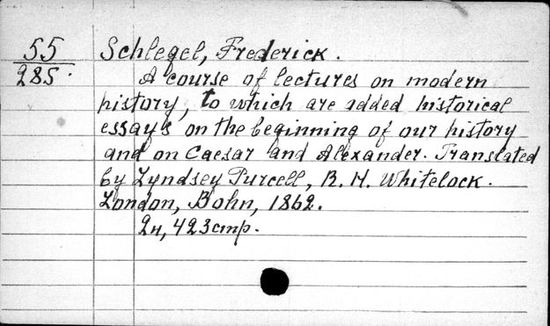 55
285.
Schlegel, Frederick.
A course of lectures on modern
history, to which are added historical
essays on the beginning of our history
and on Caesar and Alexander. Translated
by Lyndsey Purcell, R. H. Whitelock.
London, Bohn, 1862.
423